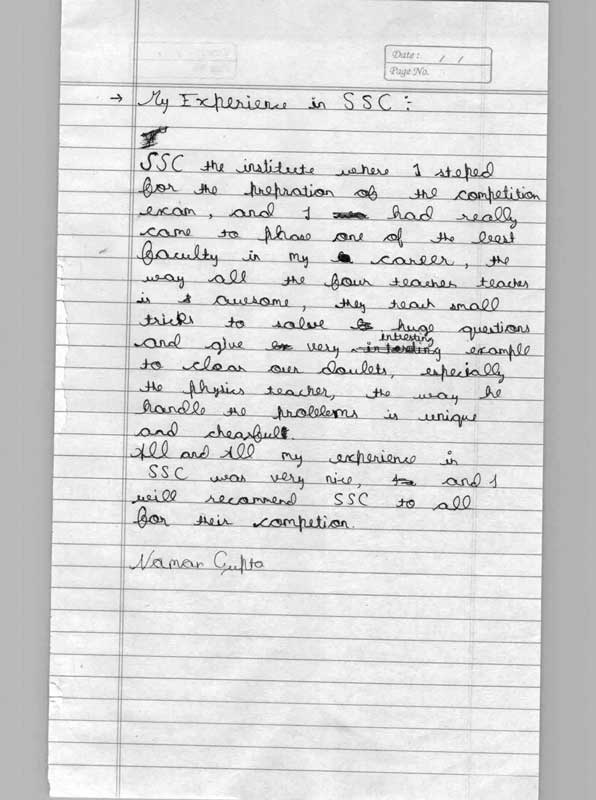 Date: / /
Page No.
→ My Experience in SSC :-
SSC the institute where I steped
for the prepration of the competition
exam, and I had really
came to phase one of the best
faculty in my career, the
way all the four teacher teaches
is awesome, they teach small
tricks to solve huge questions
and give very intresting example
to clear our doubts, especially
the physics teacher, the way he
handle the problems is unique
and chearful.
All and All my experience in
SSC was very nice, and I
will recommend SSC to all
for their competion.
Naman Gupta